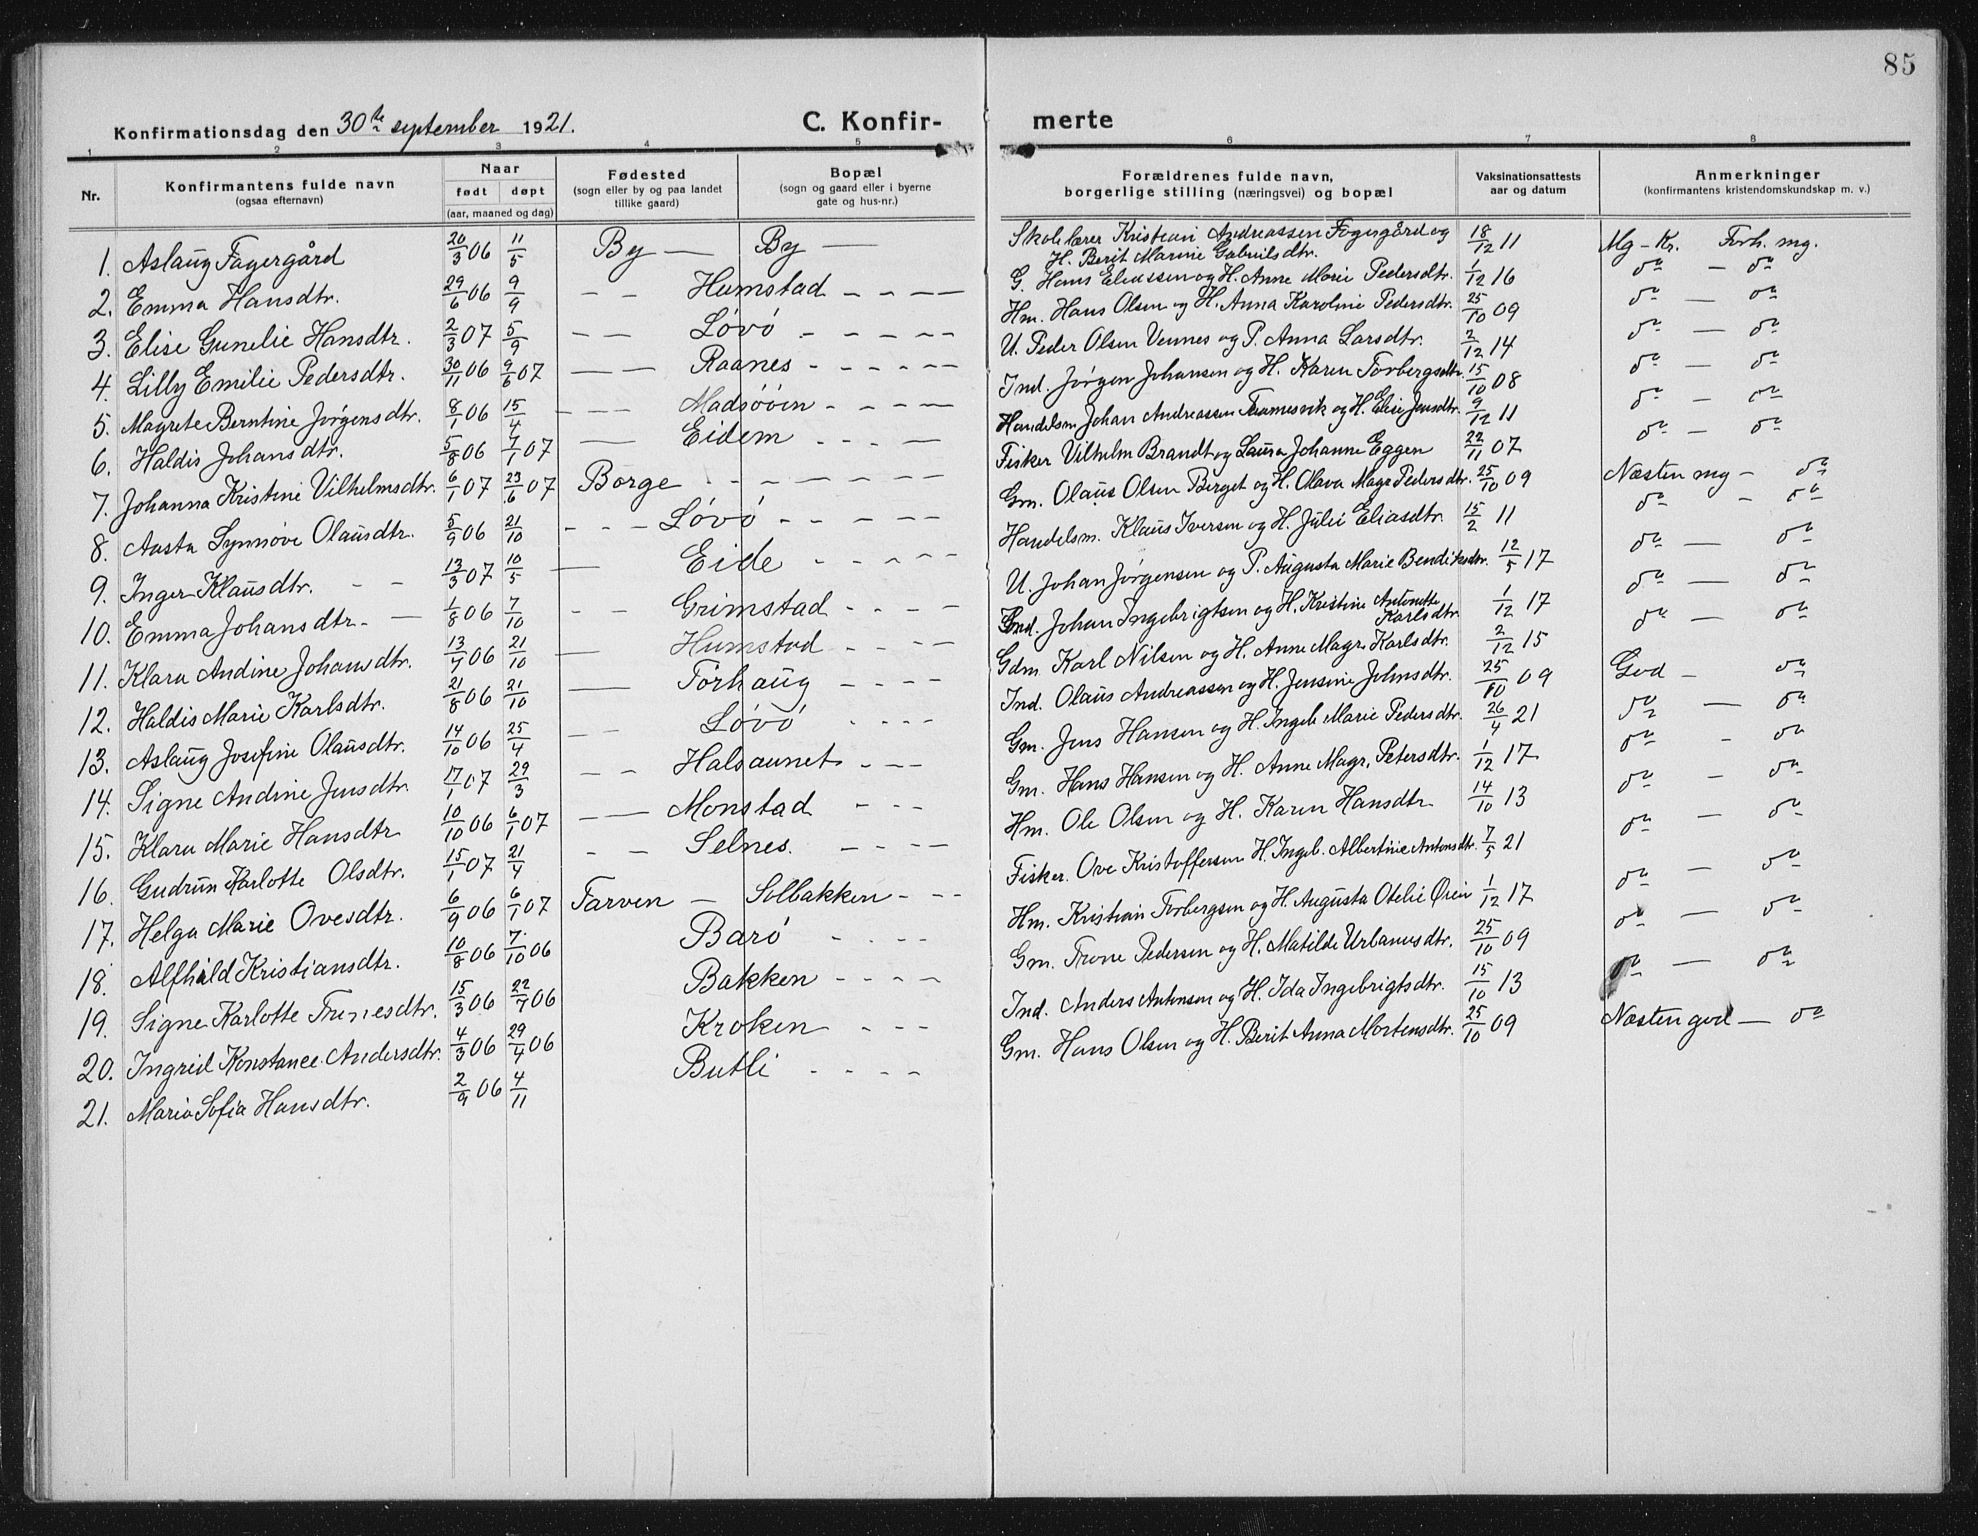 85
Konfirmationsdag den 30te september 1921.
C. Konfirmerte
1 2 3 4 5 6 7 8
Nr.
Konfirmantens fulde navn
(ogsaa efternavn)
Naar
født døpt
(aar, maaned og dag)
Fødested
(sogn eller by og paa landet
tillike gaard)
Bopæl
(sogn og gaard eller i byerne
gate og hus-nr.)
Forældrenes fulde navn,
borgerlige stilling (næringsvei) og bopæl
Vaksinationsattests
aar og datum
Anmerkninger
(konfirmantens kristendomskundskap m. v.)
1. Aslaug Fagergård 20/3 06 11/5 By — By — Skolelærer Kristian Andreassen Fagergård og H. Berit Marine Gabrielsdtr. 18/12 11 Mg - Kr. Forh. mg.
2. Emma Hansdtr. 29/6 06 9/9 - - Humstad - - - G. Hans Eliassen og H. Anne Marie Pedersdtr. 1/12 16 do - do
3. Elise Gunelie Hansdtr. 2/3 07 5/9 - - Løvö - - - - Hm. Hans Olsen og H. Anna Karoline Pedersdtr. 25/10 09 do - do
4. Lilly Emilie Pedersdtr. 30/11 06 9/6 07 - - Raanes - - - - U. Peder Olsen Vennes og P. Anna Larsdtr. 2/12 14 do - do
5. Magrete Berntine Jørgensdtr. 8/1 06 15/4 - - Madsøöien - - - - Ind. Jørgen Johansen og H. Karen Torbergsdtr. 15/10 08 do - do
6. Haldis Johansdtr. 5/8 06 7/1 07 - Eidem - - - - Handelsm Johan Andreassen og H. Elise Jensdtr. 9/12 11 do - do
7. Johanna Kristine Vilhelmsdtr. 6/1 07 23/6 07 Borge - - - - - Fisker Vilhelm Brandt og Laura Johanne Eggen 22/11 07 do - do
8. Aasta Synnöve Olausdtr. 5/9 06 21/10 - - - Løvö - - - - Gm. Olaus Olsen Berget og H. Olava Magr Pedersdtr. 25/10 09 Næsten mg - do
9. Inger Klausdtr. - - 13/3 07 10/5 — Eide - - - Handelsm. Klaus Iversen og H. Julie Eliasdtr. 15/2 11 do - do
10. Emma Johansdtr. - — 1/8 06 7/10 - - Grimstad - - - - U. Johan Jørgensen og P. Augusta Marie Bendiksdtr. 12/5 17 do - do
11. Klara Andine Johansdtr. 13/7 06 21/10 — Humstad - - - Ind. Johan Ingebrigtsen og H. Kristine Antonette Karlsdtr. 1/12 17 do - do
12. Haldis Marie Karlsdtr. 21/8 06 21/10 — Torhaug - - - - Gdm Karl Nilsen og H. Anne Magr. Karlsdtr. 2/12 15 do - do
13. Aslaug Josefine Olausdtr. 14/10 06 25/4 - - Løvö - - - - Ind. Olaus Andreassen og H. Jensine Johnsdtr. 25/10 09 God - do
14. Signe Andine Jensdtr 17/1 07 29/3 - - Halsaunet - - - Gm. Jens Hansen og H. Ingeb. Marie Pedersdtr. 26/4 21 do — do
15. Klara Marie Hansdtr 10/10 06 6/1 07 - — Monstad - - - Gm. Hans Hansen og H. Anne Magr. Petersdtr. 1/12 17 do - do
16. Gudrun Karlotte Olsdtr. 15/1 07 21/4 - - Selnes. - - - - Hm. Ole Olsen og H. Karen Hansdtr. 14/10 13 do - do
17. Helga Marie Ovesdtr. 6/9 06 6/1 07 Tarven — Solbakken - - - Fisker. Ove Kristoffersen H. Ingeb. Albertine Antonsdtr. 7/5 21 do — do
18. Alfhild Kristiansdtr. 10/8 06 7/10 06 Barö - - - - Hm. Kristian Torbergsen og H. Augusta Otelie Øien 1/12 17 do — do
19. Signe Karlotte Tronesdtr. 15/3 06 22/7 06 Bakken - - - - Gm. Trone Pedersen og H. Matilde Urbanusdtr. 25/10 09 do — do
20. Ingrid Konstance Andersdtr. 4/3 06 29/4 06 Kroken - - - Ind. Anders Antonsen og H. Ida Ingebrigtsdtr. 15/10 13 do — do
21. Maria Sofia Hansdtr. 2/9 06 4/11 Butli - - - - Gm. Hans Olsen og H. Berit Anna Mortensdtr. 25/10 09 Næsten god — do